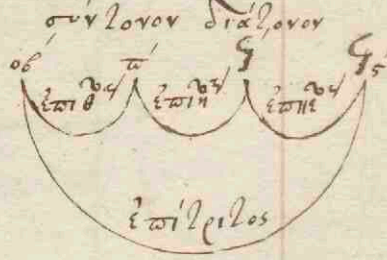 σύντονον διάτονον
οβ π ϟ ϟϛ
ἐπιθος ἐπιηος ἐπιιεος
ἐπίτριτος